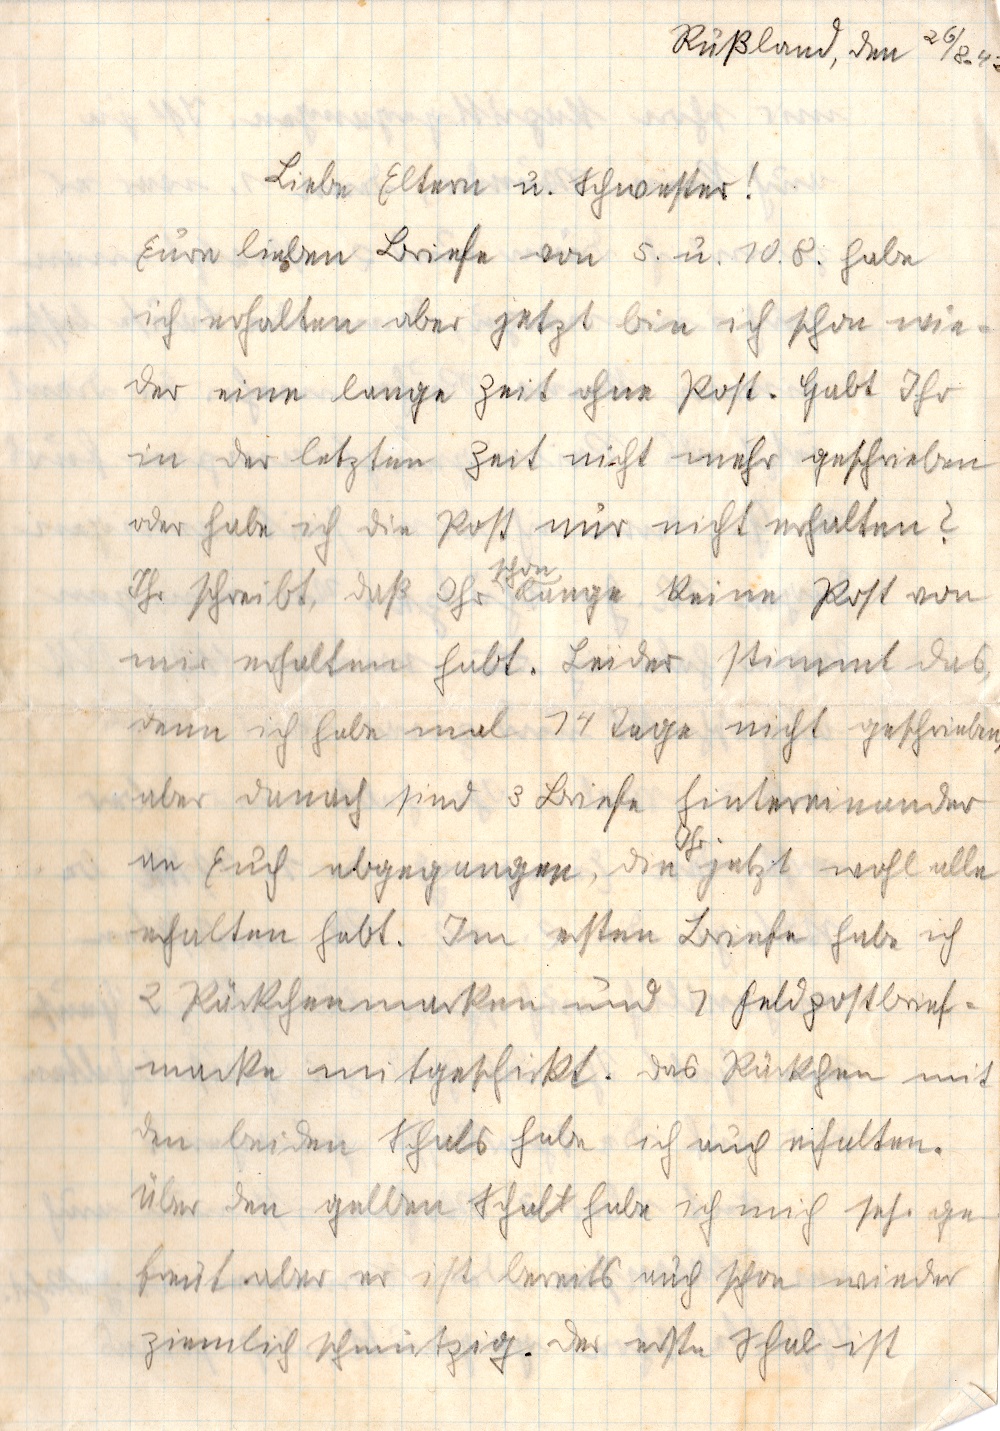 Rußland, den 26/8.43
Liebe Eltern u. Schwester!
Eure lieben Briefe von 5. u. 10.8. habe
ich erhalten aber jetzt bin ich schon wie-
der eine lange Zeit ohne Post. Habt Ihr
in der letzten Zeit nicht mehr geschrieben
oder habe ich die Post nur nicht erhalten?
Ihr schreibt, daß Ihr schon lange keine Post von
mir erhalten habt. Leider stimmt das,
denn ich habe mal 14 Tage nicht geschrieben,
aber danach sind 3 Briefe hintereinander
an Euch abgegangen, die Ihr jetzt wohl alle
erhalten habt. Im ersten Briefe habe ich
2 Päckchenmarken und 1 Feldpostbrief-
marke mitgeschickt. Das Päckchen mit
den beiden Schals habe ich auch erhalten.
Über den gelben Schal habe ich mich sehr ge
freut aber er ist bereits auch schon wieder
ziemlich schmutzig. Der erste Schal ist